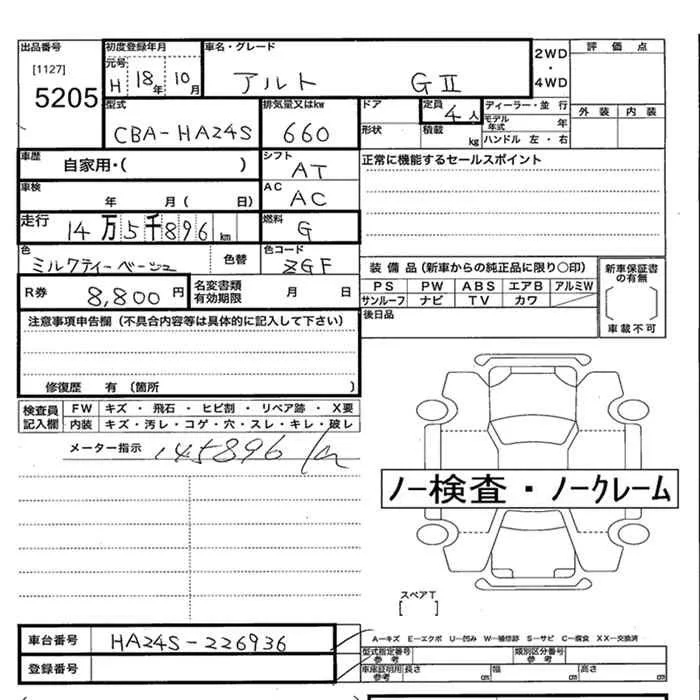 出品番号 初度登録年月 車名・グレード 2WD ・ 4WD 評価点
[1127] 元号 H 18年 10月 アルト GⅡ
5205
型式 排気量又はkw ドア 定員 4人 ディーラー・並行 外装 内装
CBA-HA24S 660 形状 積載 kg モデル年式 年
ハンドル 左・右
車歴 自家用・( ) シフト AT 正常に機能するセールスポイント
車検 年 月( 日) AC AC
走行 14万5千896km 燃料 G
色 ミルクティーベージュ 色替 色コード ZGF
装備品(新車からの純正品に限り〇印) 新車保証書の有無
R券 8,800円 名変書類有効期限 月 日 PS PW ABS エアB アルミW
サンルーフ ナビ TV カワ 車載不可
注意事項申告欄(不具合内容等は具体的に記入して下さい) 後日品
修復歴 有(箇所 )
検査員記入欄 FW キズ・飛石・ヒビ割・リペア跡・X要
内装 キズ・汚レ・コゲ・穴・スレ・キレ・破レ
メーター指示 145896 km
ノー検査・ノークレーム
スペアT
[ ]
車台番号 HA24S-226936 A―キズ E―エクボ U―凹み W―補修跡 S―サビ C―腐食 XX―交換済
型式指定番号 参考 類別区分番号 参考
登録番号 車庫証明用 参考 長さ cm 幅 cm 高さ cm